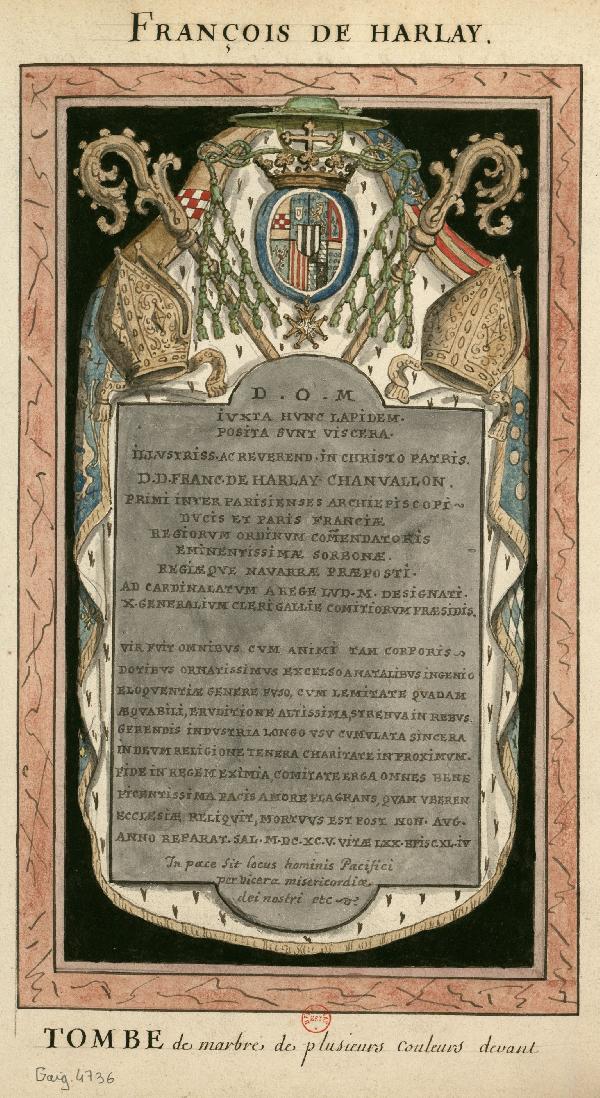 FRANÇOIS DE HARLAY.
D. O. M
IVXTA HVNC LAPIDEM.
POSITA SVNT VISCERA.
ILLVSTRISS. AC REVEREND. IN CHRISTO PATRIS.
D.D. FRANC. DE HARLAY CHANVALLON.
PRIMI INTER PARISIENSES ARCHIEPISCOPI~
DVCIS ET PARIS FRANCIÆ
REGIORVM ORDINVM COM̃ENDATORIS
EMINENTISSIMÆ SORBONÆ.
REGIÆQVE NAVARRÆ PRÆPOSTI.
AD CARDINALATVM A REGE LVD. M. DESIGNATI.
X. GENERALIVM CLERI GALLIE COMITIORVM PRÆSIDIS.
VIR FVIT OMNIBVS, CVM ANIMI TAM CORPORIS~
DOTIBVS ORNATISSIMVS EXCELSO A NATALIBVS INGENIO
ELOQVENTIÆ GENERE FVSO, CVM LEMITATE QVADAM
ÆQVABILI, ERVDITIONE ALTISSIMA, STRENVA IN REBVS.
GERENDIS INDVSTRIA LONGO VSV CVMVLATA SINCERA
IN DEVM RELIGIONE TENERA CHARITATE IN PROXIMVM.
FIDE IN REGEM EXIMIA, COMITATE ERGA OMNES BENE
FICENTISSIMA PACIS AMORE FLAGRANS, QVAM VBEREN
ECCLESIÆ RELIQVIT, MORTVVS EST POST. NON. AVG.
ANNO REPARAT. SAL. M. DC. XC. V. VITÆ LXX. EPISC XL. IV
In pace sit locus hominis Pacifici
per vicera misericordiæ
dei nostri etc
TOMBE de marbre de plusieurs couleurs devant
Gaig. 4736